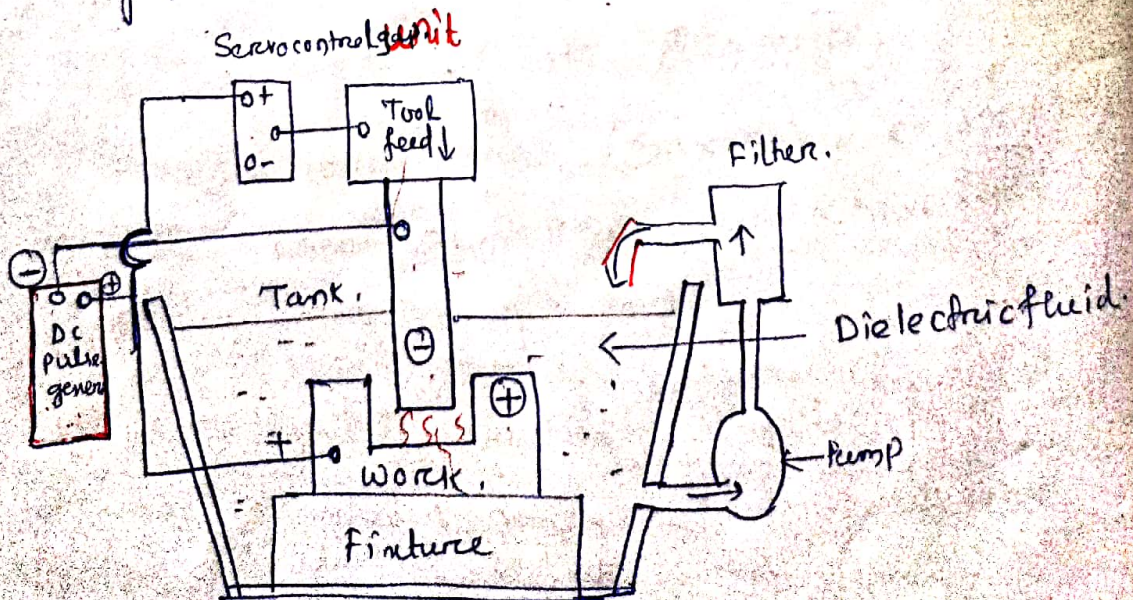 Servocontrol unit
o+
o-
Tool
feed ↓
Filter.
Tank.
DC
pulse
gener
Dielectric fluid.
+
Work.
Pump
Fixture